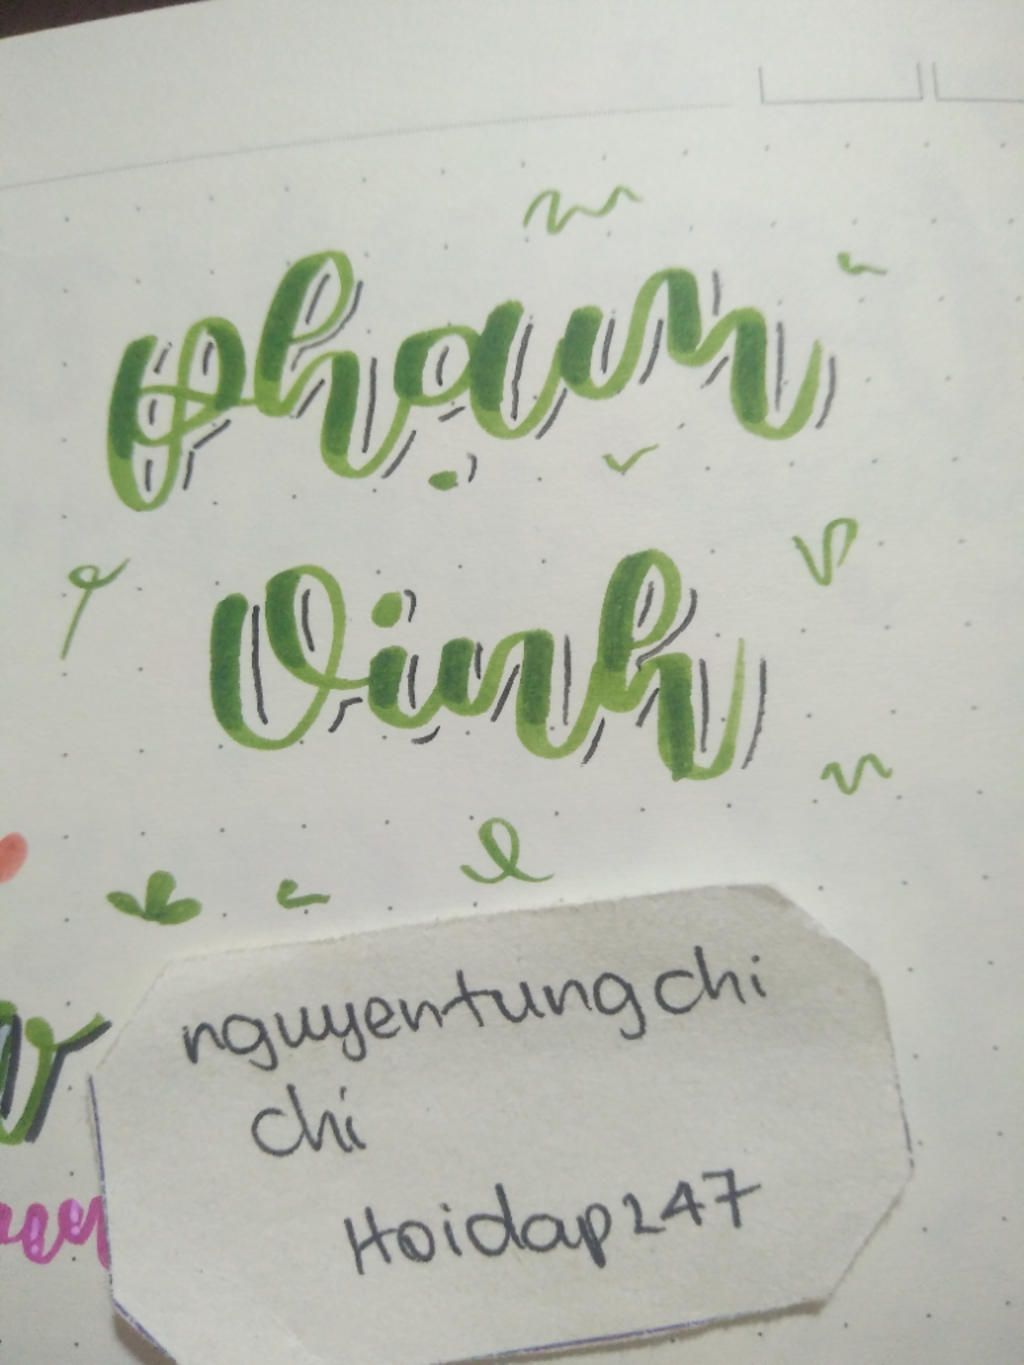 Phạm
Vinh
nguyentungchi
chi
Hoidap247